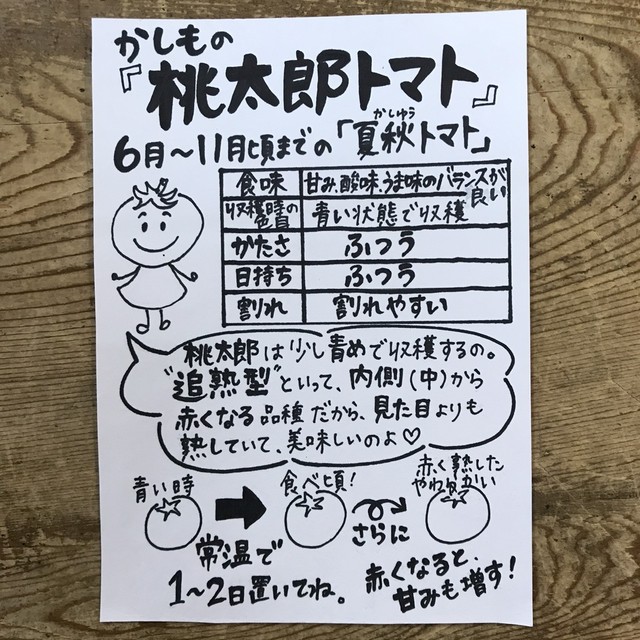 かしもの
『桃太郎トマト』
6月〜11月頃までの「夏秋トマト」
かしゅう
食味 甘み、酸味、うま味のバランスが良い
収穫時の色目 青い状態で収穫
かたさ ふつう
日持ち ふつう
割れ 割れやすい
桃太郎は少し青めで収穫するの。
"追熟型"といって、内側(中)から
赤くなる品種だから、見た目よりも
熟していて、美味しいのよ♡
青い時
食べ頃!
さらに
赤く熟した
やわらかい
常温で
1〜2日置いてね。
赤くなると、
甘みも増す!